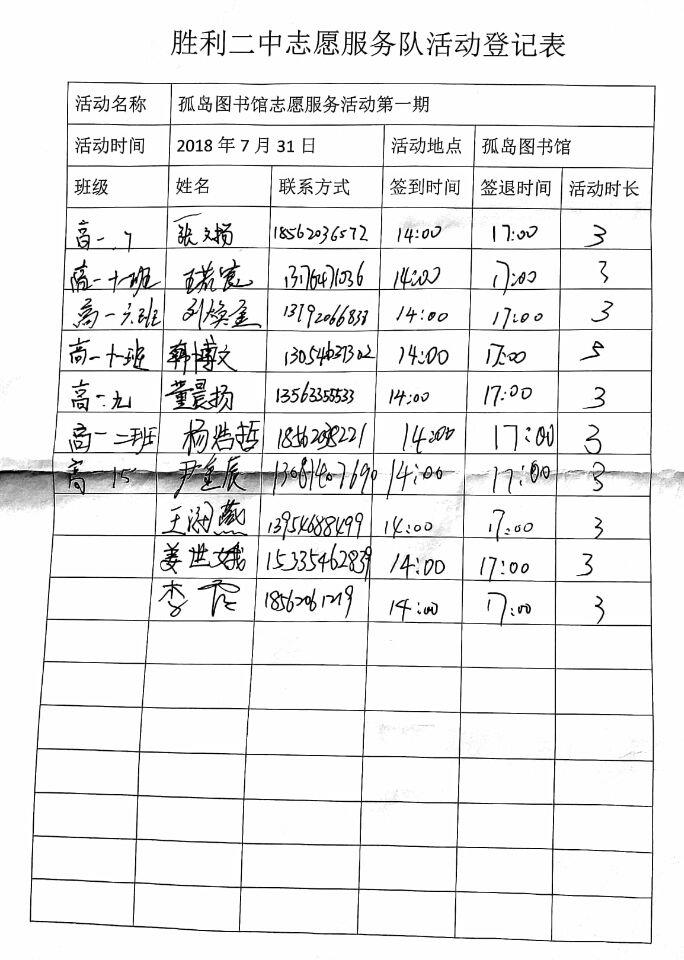 胜利二中志愿服务队活动登记表
活动名称 孤岛图书馆志愿服务活动第一期
活动时间 2018年7月31日 活动地点 孤岛图书馆
班级 姓名 联系方式 签到时间 签退时间 活动时长
高一.7 张文扬 18562036572 14:00 17:00 3
高一十一班 王若 13176471036 14:00 17:00 3
高一六班 刘焕金 13792066833 14:00 17:00 3
高一十班 韩博文 13054637302 14:00 17:00
高一.九 董晨扬 13563355533 14:00 17:00 3
高一二班 杨浩哲 18562038221 14:00 17:00 3
高一15 尹金辰 13081407690 14:00 17:00 3
王海燕 13954688499 14:00 17:00 3
姜世娥 15335462839 14:00 17:00 3
李霞 18562061219 14:00 17:00 3